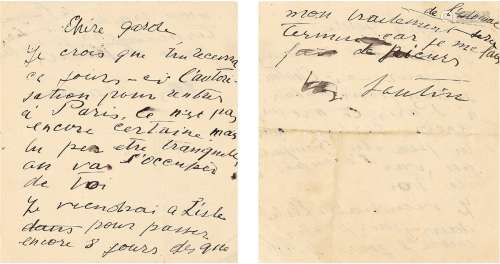 Chère garde
Je crois que tu recevra
ce jours-ci l'autori
sation pour rentrer
à Paris, Ce n'est pas
encore certaine mais
tu peu etre tranquille
on va s'occuper
de Toi
Je viendrai a L'isle
dans pour passer
encore 8 jours des que
mon traitement de l'estomac sera
terminé car je me fais
pas de piqures
Soutine